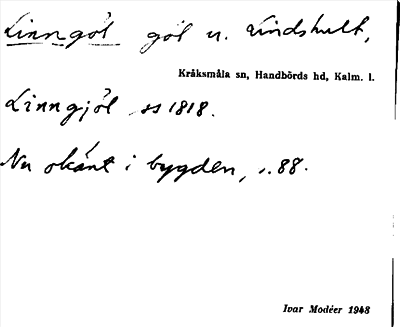 Linngöl göl u. Lindshult,
Kråksmåla sn, Handbörds hd, Kalm. l.
Linngjöl ss 1818.
Nu okänt i bygden, s. 88.
Ivar Modéer 1943